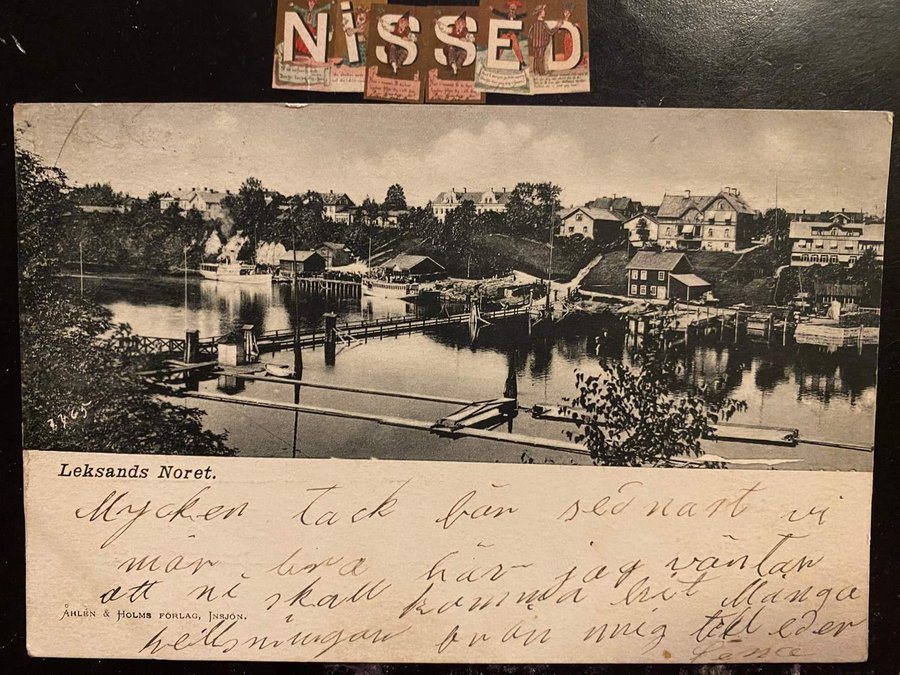 NiSSED
7765
Leksands Noret.
Mycken tack bär sednast vi
mår bra här jag väntar
att ni skall komma hit Många
ÅHLÉN & HOLMS FÖRLAG, INSJÖN.
hellsningar från mig till eder